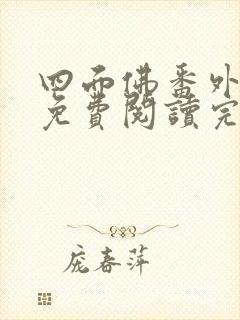 四面佛番外
免費閱讀完
庞春萍